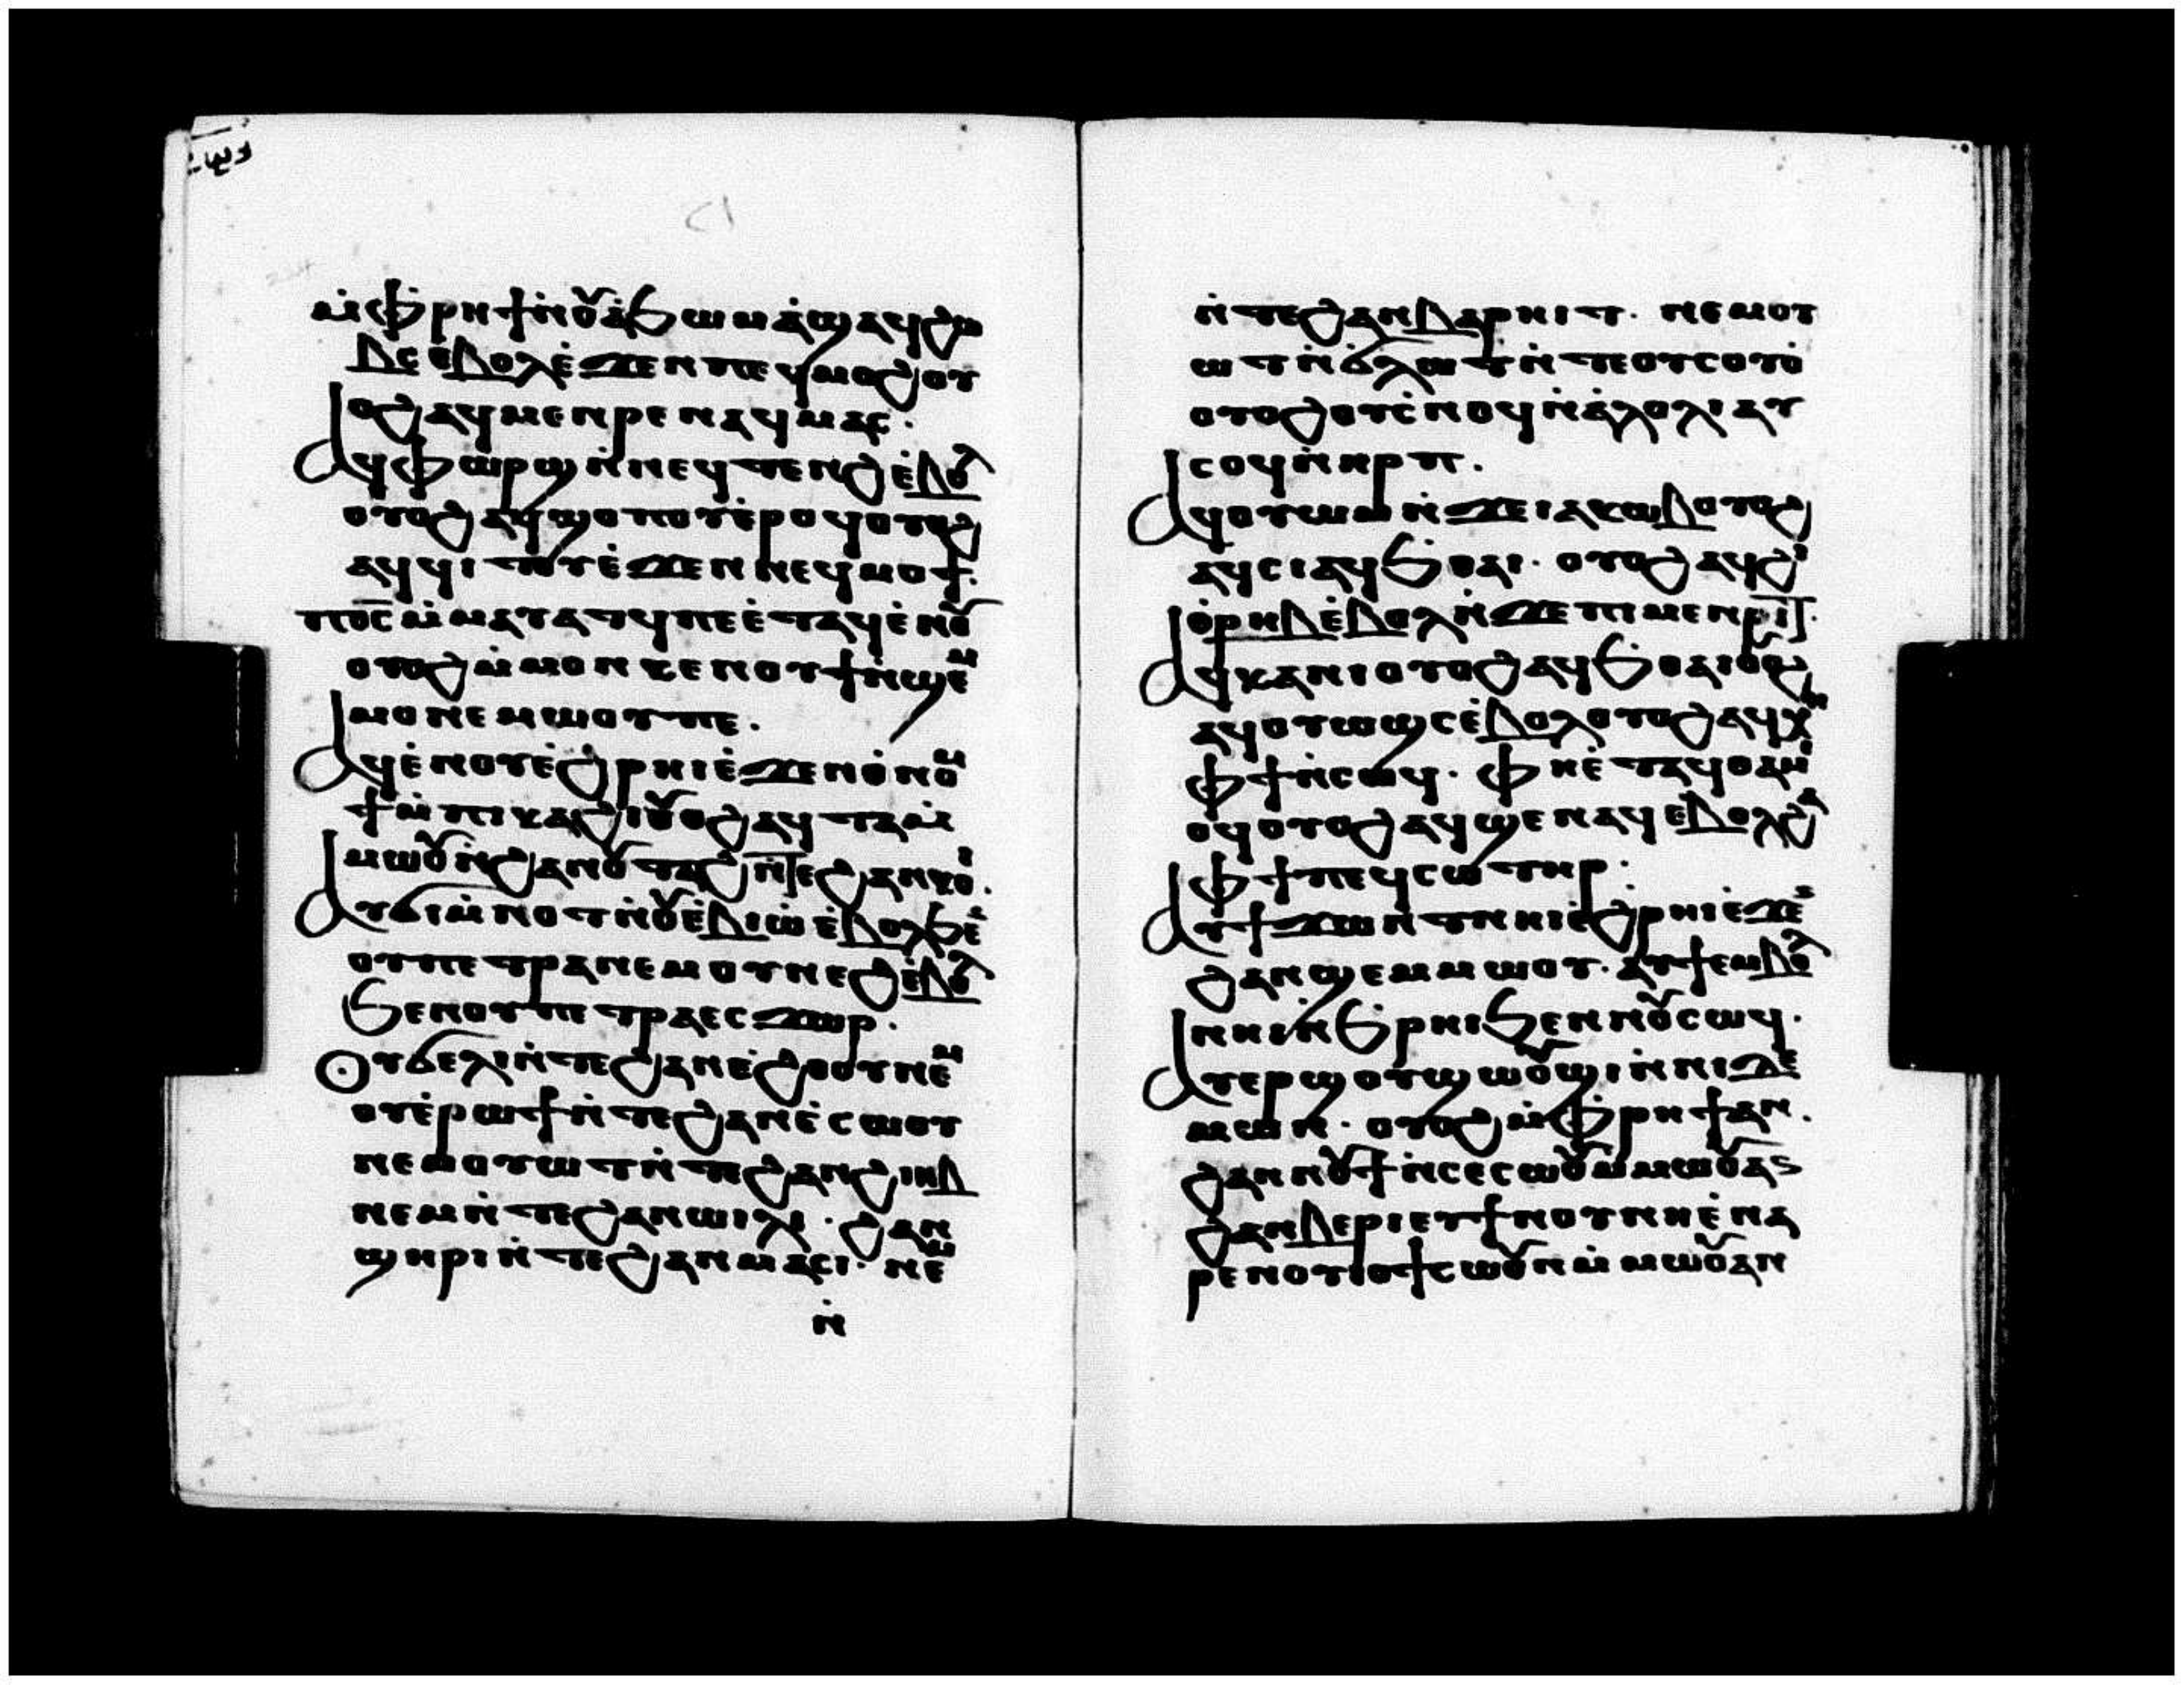 ⲙ̇ⲫ̇ⲣⲏϯⲛ̇ⲟⲩⲁ̇ϧⲱⲙⲁ̇ϣⲁϥϩⲱ
ⲃⲥⲉⲃⲟⲗⲉ̇ϫⲉⲛⲡⲉϥⲙⲟϩⲟⲩ
ⲟϩⲁϥⲙⲉⲛⲣⲉⲛⲁϥⲙⲁⲥ.
ⲁϥⲫⲱⲣϣⲛ̇ⲛⲉϥⲧⲉⲛϩⲉ̇ⲃⲟⲗ
ⲟⲩⲟϩⲁϥϣⲟⲡⲟⲩⲉ̇ⲣⲟϥⲟⲩⲟϩ
ⲁϥϥⲓⲧⲟⲩⲉ̇ϫⲉⲛⲛⲉϥⲙⲟϯ.
ⲡⲟ̅ⲥ̅ⲙ̇ⲙⲁⲩⲁⲧϥⲡⲉⲉ̇ⲧⲁϥⲉ̇ⲛⲟⲩ
ⲟⲩⲟϩⲙ̇ⲙⲟⲛⲕⲉⲛⲟⲩϯⲛ̇ϣⲉⲙ
ⲙⲟⲛⲉⲙⲱⲟⲩⲡⲉ.
ⲁϥⲉ̇ⲛⲟⲩⲉ̇ϩ̇ⲣⲏⲓⲉ̇ϫⲉⲛⲟ̇ⲛⲟⲙ
ϯⲙ̇ⲡⲓⲕⲁϩⲓⲟⲩⲟϩⲁϥⲧⲁⲙ̇
ⲙⲱⲟⲩⲛ̇ϩⲁⲛⲟⲩⲧⲁϩⲛ̇ⲧⲉϩⲁⲛⲕⲟⲓ.
ⲁⲩϭⲓⲙ̇ⲛⲟⲧⲛ̇ⲟⲩⲉ̇ⲃⲓⲱ̇ⲉ̇ⲃⲟⲗϧⲉⲛ
ⲟⲩⲡⲉⲧⲣⲁⲛⲉⲙⲟⲩⲛⲉϩⲉ̇ⲃⲟⲗ
ϧⲉⲛⲟⲩⲡⲉⲧⲣⲁⲉⲥϫⲱⲣ.
ⲟⲩϭⲉⲗⲓⲛ̇ⲧⲉϩⲁⲛⲉ̇ϩⲟⲟⲩⲛⲉⲙ
ⲟⲩⲉ̇ⲣⲱϯⲛ̇ⲧⲉϩⲁⲛⲉ̇ⲥⲱⲟⲩ
ⲛⲉⲙⲟⲩⲱⲧⲛ̇ⲧⲉϩⲁⲛϩⲓⲏⲃ
ⲛⲉⲙⲛ̇ⲧⲉϩⲁⲛⲱⲓⲗⲓ. ϩⲁⲛ
ϣⲏⲣⲓⲛ̇ⲧⲉϩⲁⲛⲙⲁⲥⲓ. ⲛⲉⲙ
ⲛ̇
ⲛ̇ⲧⲉϩⲁⲛⲃⲁⲣⲏⲓⲧ. ⲛⲉⲙⲟⲩ
ⲱⲧⲛ̇ϭ̇ⲗⲱⲧⲛ̇ⲧⲉⲟⲩⲥⲟⲩⲟ̇
ⲟⲩⲟϩⲟⲩⲥ̇ⲛⲟϥⲛ̇ⲁ̇ⲗⲟⲗⲓⲁⲩ
ⲥⲟϥⲛ̇ⲏⲣⲡ.
ⲁϥⲟⲩⲱⲙⲛ̇ϫⲉⲓⲁⲕⲱⲃⲟⲩⲟϩ
ⲁϥⲥⲓⲁϥϧⲑⲁⲓ. ⲟⲩⲟϩⲁϥϩⲓ
ⲟ̇ⲣⲏⲃⲉ̇ⲃⲟⲗⲛ̇ϫⲉⲡⲓⲙⲉⲛⲣⲓⲧ.
ⲁϥⲕⲁⲛⲓⲟⲩⲟϩⲁϥϧⲑⲁⲓⲟⲩⲟϩ
ⲁϥⲟⲩⲱϣⲥⲉ̇ⲃⲟⲗⲟⲩⲟϩⲁϥⲭⲁ
ⲫϯⲛ̇ⲥⲱϥ. ⲫⲏⲉ̇ⲧⲁϥⲑⲁⲙⲓ
ⲟϥⲟⲩⲟϩⲁϥϣⲉⲛⲁϥⲉⲃⲟⲗϩⲁ
ⲫϯⲡⲉϥⲥⲱⲧⲏⲣ.
ⲁⲩϯϫⲱⲛ̇ⲧⲛⲏⲓⲉ̇ϩⲣⲏⲓⲉ̇ϫⲉⲛ
ϩⲁⲛϣⲉⲙⲙⲱⲟⲩ. ⲁⲩϯⲉⲙⲃⲟⲛ
ⲛⲏⲓⲛ̇ϧⲣⲏⲓϧⲉⲛⲛⲟⲩⲥⲱϥ.
ⲁⲩⲉⲣϣⲟⲩϣⲱⲟⲩϣⲓⲛ̇ⲛⲓⲇⲉ
ⲙⲱⲛ. ⲟⲩⲟϩⲙ̇ⲫ̇ⲣⲏϯⲁⲛ.
ϩⲁⲛⲛⲟⲩϯⲛ̇ⲥⲉⲥⲱⲟⲩⲙ̇ⲙⲱⲟⲩⲁⲛ
ϩⲁⲛⲃⲉⲣⲓⲉⲩϯⲛⲟⲩⲛⲏⲉ̇ⲛⲁ
ⲣⲉⲛⲟⲩⲓⲟϯⲥⲱⲟⲩⲛⲙ̇ⲙⲱⲟⲩⲁⲛ